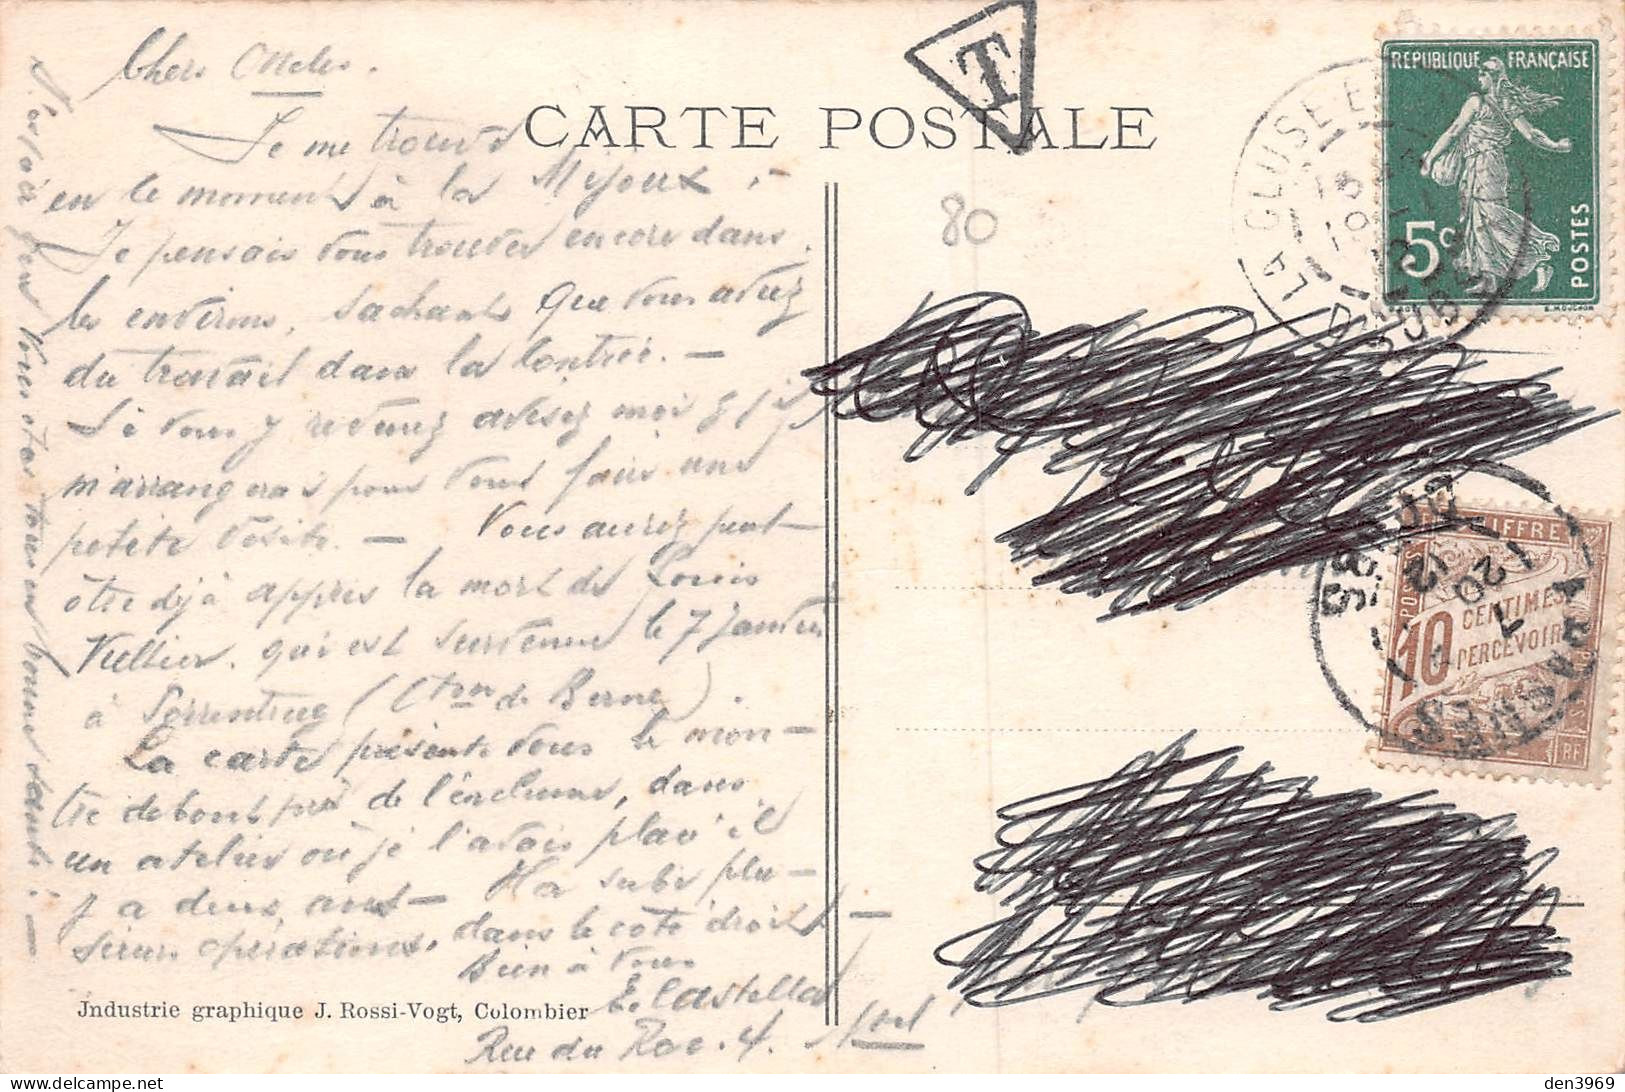 Chers Oncles.
Je me trouve
en le moment à la Mijoux. -
Je pensais vous trouver encore dans
les environs, sachant que vous aviez
du travail dans la contrée. -
Si vous y revenez avisez moi
m'arrangerai pour vous faire une
petite visite. - Vous aurez peut-
être déjà appris la mort de Louis
Vuillier. qui est survenue le 7 Janvier
à Porrentruy (Cton de Berne).
La carte présente vous le mon-
tre debout près de l'enclume, dans
un atelier où je l'avais placé il
y a deux ans - Il a subi plu-
sieurs opérations, dans le côté droit -
Bien à vous
E. Castella
Rue du Roc. 4.
J'espère que vous êtes tous en bonne santé. -
CARTE POSTALE
T
80
REPUBLIQUE FRANÇAISE
5c
POSTES
E. MOUCHON
LA CLUSE-E
DOUBS
CHIFFRE
10
CENTIMES
PERCEVOIR
POSTES
RF
DOUBS
20
12
Jndustrie graphique J. Rossi-Vogt, Colombier
den3969